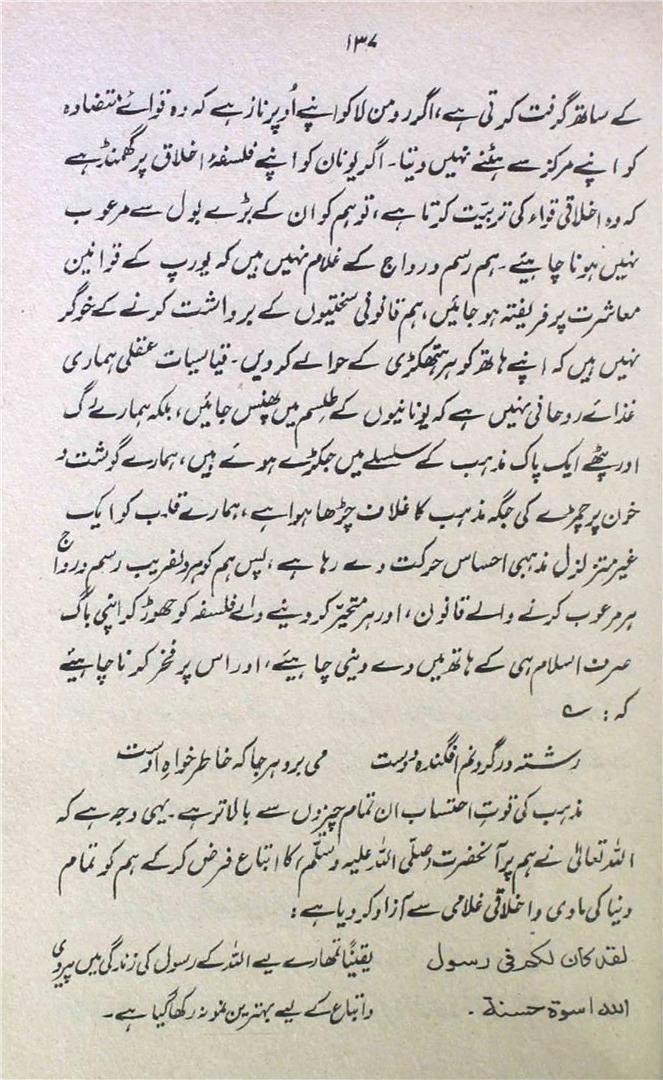 ۱۳۷
کے ساتھ گرفت کرتی ہے، اگر رومن لا کو اپنے اُوپر ناز ہے کہ وہ قوائے متضادہ
کو اپنے مرکز سے ہٹنے نہیں دیتا۔ اگر یونان کو اپنے فلسفۂ اخلاق پر گھمنڈ ہے
کہ وہ اخلاقی قواء کی تربیّت کرتا ہے، تو ہم کو ان کے بڑے بول سے مرعوب
نہیں ہونا چاہیئے۔ ہم رسم و رواج کے غلام نہیں ہیں کہ یورپ کے قوانین
معاشرت پر فریفتہ ہو جائیں، ہم قانونی سختیوں کے برداشت کرنے کے خوگر
نہیں ہیں کہ اپنے ہاتھ کو ہر ہتھکڑی کے حوالے کر دیں۔ قیاسیات عقلی ہماری
غذائے روحانی نہیں ہے کہ یونانیوں کے طلسم میں پھنس جائیں، بلکہ ہمارے رگ
اور پٹھے ایک پاک مذہب کے سلسلے میں جکڑے ہوئے ہیں، ہمارے گوشت و
خون پر چمڑے کی جگہ مذہب کا غلاف چڑھا ہوا ہے، ہمارے قلب کو ایک
غیر متزلزل مذہبی احساس حرکت دے رہا ہے، پس ہم کو ہر دلفریب رسم و رواج
ہر مرعوب کرنے والے قانون، اور ہر متحیّر کر دینے والے فلسفہ کو چھوڑ کر اپنی باگ
صرف اسلام ہی کے ہاتھ میں دے دینی چاہیئے، اور اس پر فخر کرنا چاہیئے
کہ: ؎
رشتہ در گردنم افگندہ دوست می برو ہر جا کہ خاطر خواہِ اوست
مذہب کی قوتِ احتساب ان تمام چیزوں سے بالا تو ہے۔ یہی وجہ ہے کہ
اللہ تعالیٰ نے ہم پر آنحضرت (صلّی اللہ علیہ وسلّم) کا اتباع فرض کر کے ہم کو تمام
دنیا کی مادی و اخلاقی غلامی سے آزاد کر دیا ہے:
لقد کان لکم فی رسول یقینًا تمھارے لیے اللہ کے رسول کی زندگی میں پیروی
اللہ اسوۃ حسنۃ۔ و اتباع کے لیے بہترین نمونہ رکھا گیا ہے۔